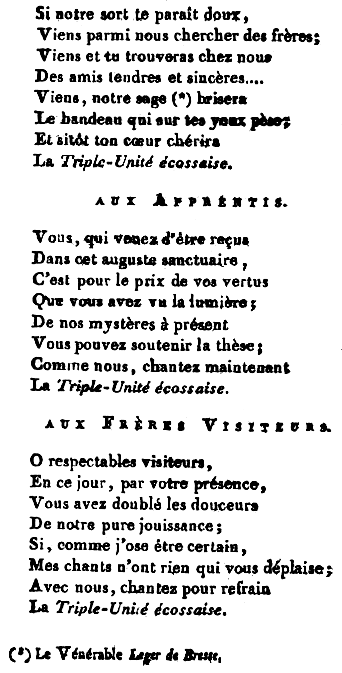 Si notre sort te paraît doux,
Viens parmi nous chercher des frères;
Viens et tu trouveras chez nous
Des amis tendres et sincères....
Viens, notre sage (*) brisera
Le bandeau qui sur tes yeux pèse;
Et sitôt ton cœur chérira
La Triple-Unité écossaise.
AUX APPRENTIS.
Vous, qui venez d'être reçus
Dans cet auguste sanctuaire,
C'est pour le prix de vos vertus
Que vous avez vu la lumière;
De nos mystères à présent
Vous pouvez soutenir la thèse;
Comme nous, chantez maintenant
La Triple-Unité écossaise.
AUX FRÈRES VISITEURS.
O respectables visiteurs,
En ce jour, par votre présence,
Vous avez doublé les douceurs
De notre pure jouissance;
Si, comme j'ose être certain,
Mes chants n'ont rien qui vous déplaise;
Avec nous, chantez pour refrain
La Triple-Unité écossaise.
(*) Le Vénérable Leger de Bresse.